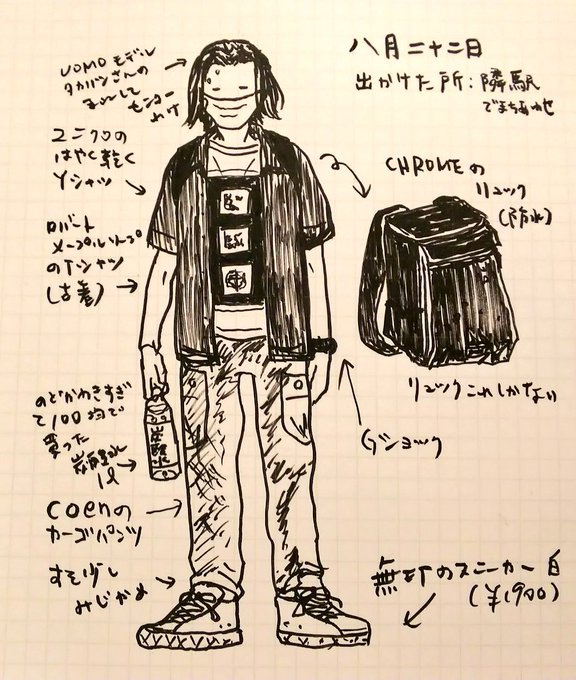 八月二十二日
出かけた所：隣駅
でまちあわせ
UOMOモデル
タカハシさんの
まねして
センター
わけ
ユニクロの
はやく乾く
Yシャツ
ロバート
メープルソープ
のTシャツ
（古着）
CHROMEの
リュック
（防水）
リュックこれしかない
のどかわきすぎ
て100均で
買った
炭酸水
1ℓ
炭酸水
Gショック
coenの
カーゴパンツ
すそ少し
みじかめ
無印のスニーカー白
（¥1900）